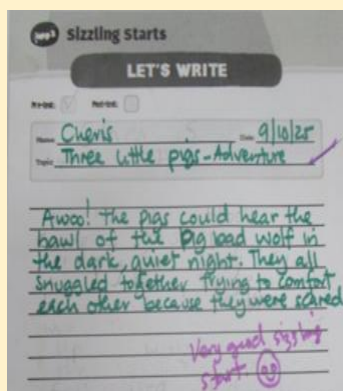 Sizzling Starts
LET'S WRITE
Pre-test: Post-test:
Name: Cheris Date: 9/10/25
Topic: Three little pigs - Adventure
Awoo! The pigs could hear the
howl of the big bad wolf in
the dark, quiet night. They all
snuggled together trying to comfort
each other because they were scared
Very good sizzling
start